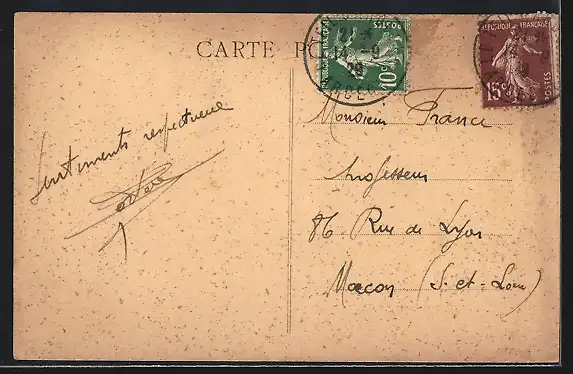 CARTE PO
REPUBLIQUE FRANÇAISE
POSTES
10c
REPUBLIQUE FRANÇAISE
15c
POSTES
Sentiments respectueux
Monsieur France
Professeur
86 Rue de Lyon
Macon (S.-et-Loire)